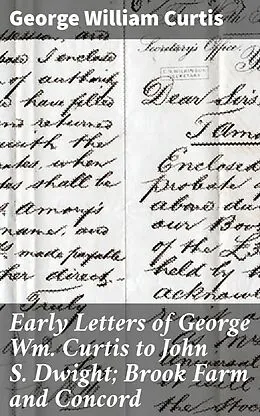 George William Curtis
Secretary's Office,
C. N. WILKINSON
SECRETARY
Dear Sirs
I am
I enclose
of autho
d have filled
and returned
auth the
when
as shall be
Amory's
name, and
made payable
direct
Truly
Enclosed
probate
above du
our Boo
of the L
held by th
acknow
Early Letters of George
Wm. Curtis to John
S. Dwight; Brook Farm
and Concord